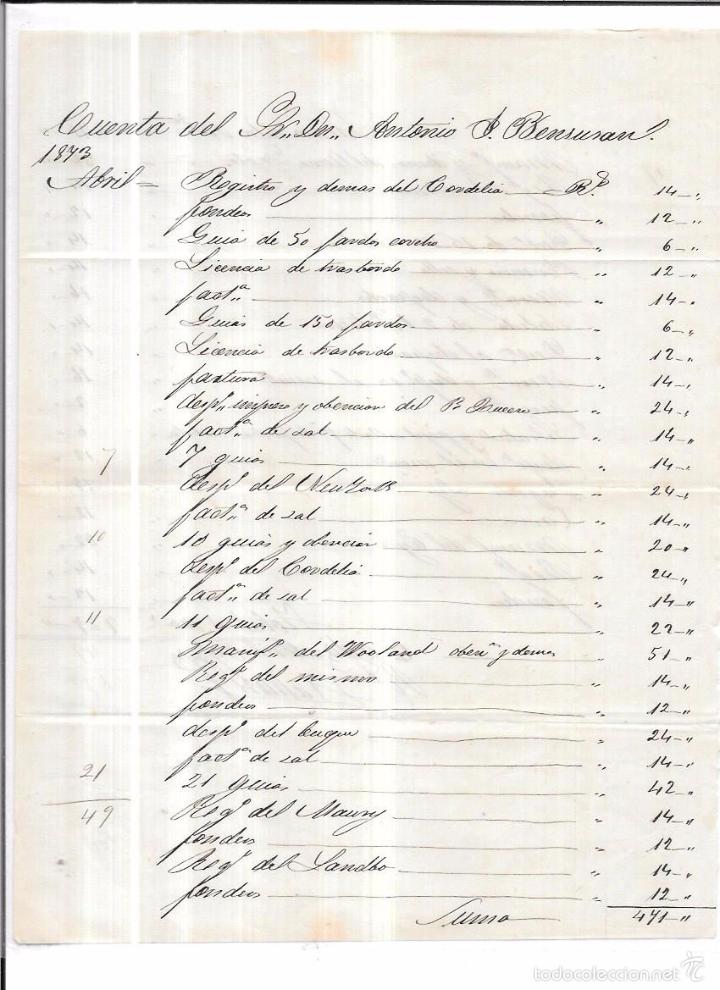 Cuenta del Sr. Dn. Antonio J. Bensusan.
1873
Abril = Registro y demas del Cordelia Rs. 14 "
fondeo " 12 "
Guia de 50 fardos corcho " 6 "
Licencia de trasbordo " 12 "
fact.ª " 14 "
Guias de 150 fardos " 6 "
Licencia de trasbordo " 12 "
factura " 14 "
desp.º y obencion del 24 "
fact.ª de sal " 14 "
7 7 guias " 14 "
desp.º del New York " 24 "
fact.ª de sal " 14 "
10 10 guias y obencion " 20 "
desp.º del Cordelia " 24 "
fact.ª de sal " 14 "
11 11 guias " 22 "
Manif.º del Wooland oben.n y demas " 51 "
Reg.º del mismo " 14 "
fondeo " 12 "
desp.º del buque " 24 "
fact.ª de sal " 14 "
21 21 guias " 42 "
49 Reg.º del Maury " 14 "
fondeo " 12 "
Reg.º del Landbo " 14 "
fondeo " 12 "
Suma 471 "
todocoleccion.net